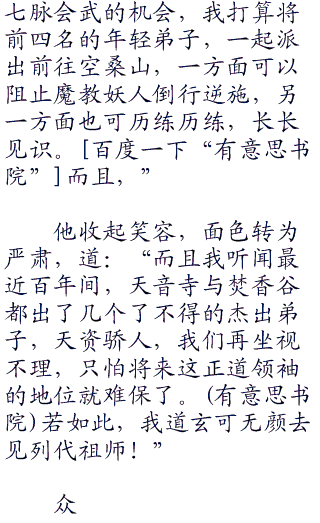 七脉会武的机会，我打算将
前四名的年轻弟子，一起派
出前往空桑山，一方面可以
阻止魔教妖人倒行逆施，另
一方面也可历练历练，长长
见识。[百度一下“有意思书
院”]而且，”
他收起笑容，面色转为
严肃，道：“而且我听闻最
近百年间，天音寺与焚香谷
都出了几个了不得的杰出弟
子，天资骄人，我们再坐视
不理，只怕将来这正道领袖
的地位就难保了。(有意思书
院)若如此，我道玄可无颜去
见列代祖师！”
众